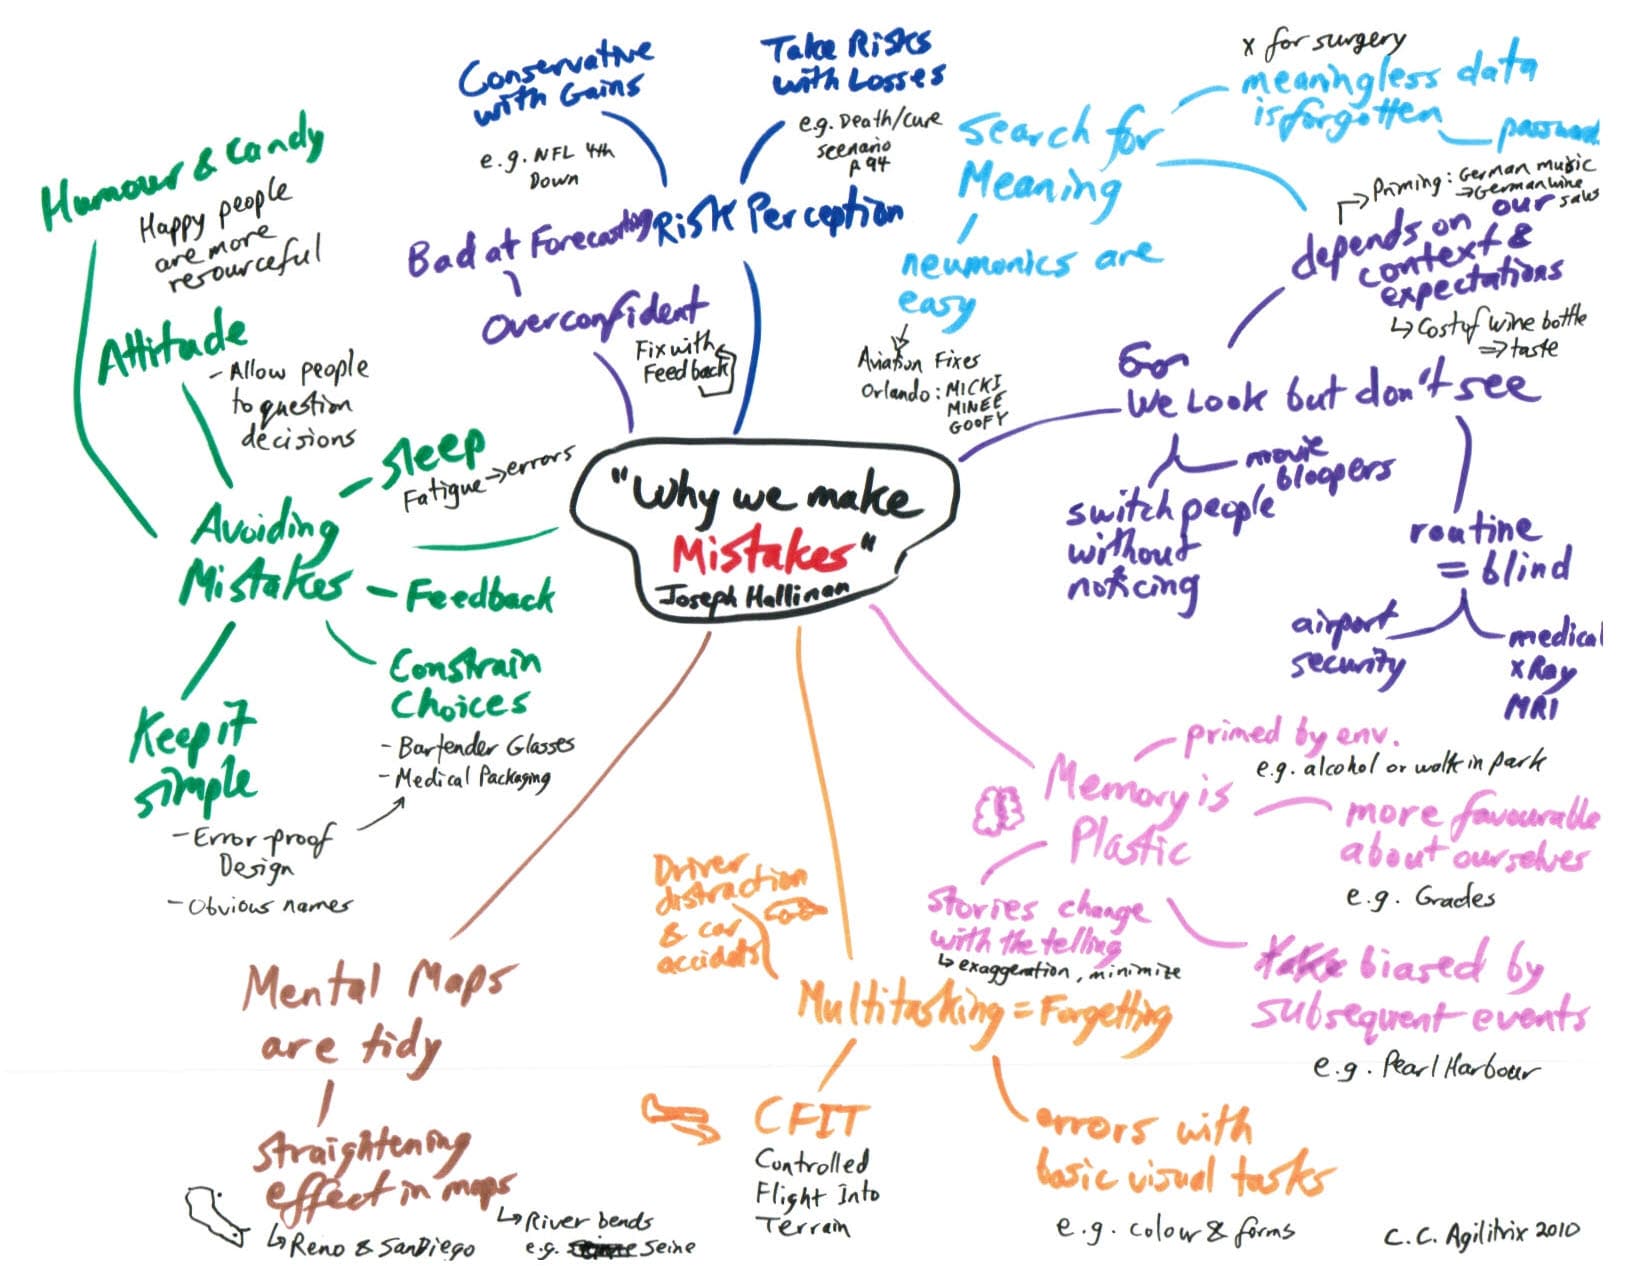 "Why we make
Mistakes"
Joseph Hallinan
Conservative
with Gains
e.g. NFL 4th
Down
Take Risks
with Losses
e.g. Death/cure
scenario
p 94
Risk Perception
Bad at Forecasting
Overconfident
Fix with
Feedback
Search for
Meaning
x for surgery
meaningless data
is forgotten
password
neumonics are
easy
Aviation Fixes
Orlando: MICKI
MINEE
GOOFY
Priming: German music
→ German wine
saws
depends on our
context &
expectations
↳ Cost of wine bottle
⇒ taste
We Look but don't see
movie
bloopers
switch people
without
noticing
routine
= blind
airport
security
medical
xRay
MRI
Memory is
Plastic
primed by env.
e.g. alcohol or walk in park
more favourable
about ourselves
e.g. Grades
biased by
subsequent events
e.g. Pearl Harbour
stories change
with the telling
↳ exaggeration, minimize
Multitasking = Forgetting
Driver
distraction
& car
accidents
CFIT
Controlled
Flight Into
Terrain
errors with
basic visual tasks
e.g. colour & forms
Mental Maps
are tidy
straightening
effect in maps
↳ Reno & SanDiego
↳ River bends
e.g. Seine
Avoiding
Mistakes
Humour & Candy
Happy people
are more
resourceful
Attitude
- Allow people
to question
decisions
Sleep
Fatigue → errors
Feedback
Constrain
Choices
- Bartender Glasses
- Medical Packaging
Keep it
simple
- Error-proof
Design
- Obvious names
C.C. Agilitrix 2010